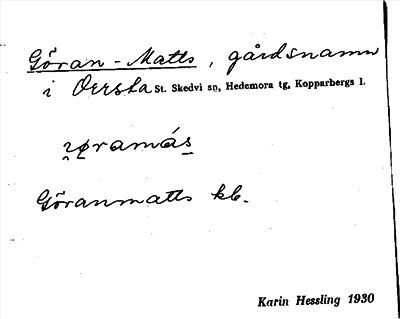 Göran-Matts, gårdsnamn
i Oersta St. Skedvi sn, Hedemora tg, Kopparbergs l.
Göranmatts kb.
Karin Hessling 1930